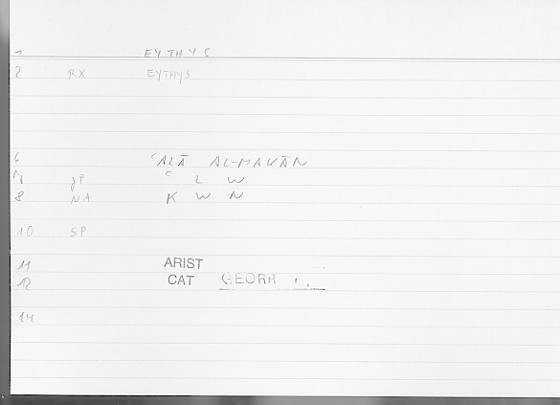 1 EYTHYS
2 RX EYTHYS
6 ʿALĀ AL-MAKĀN
JP ʿ L W
8 NA K W N
10 SP
11 ARIST
12 CAT GEORR
14